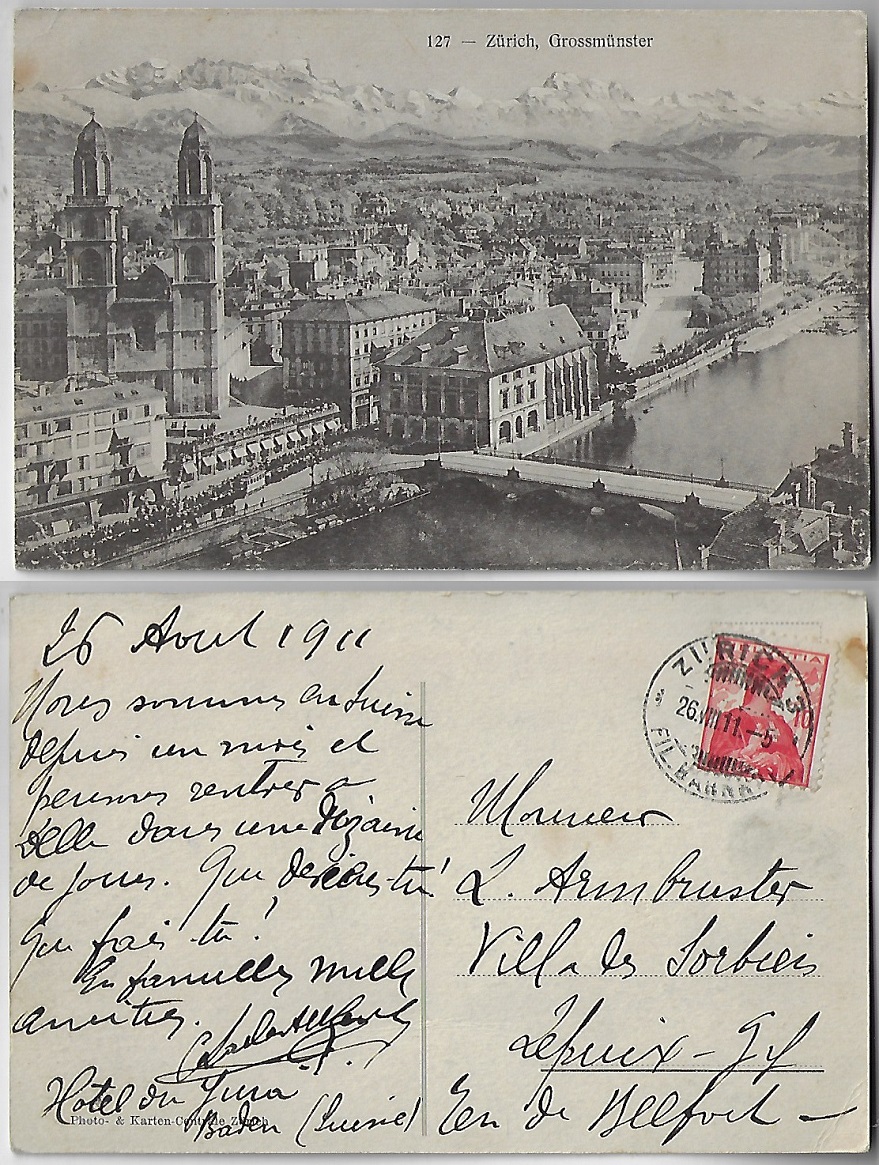 127 — Zürich, Grossmünster
26 Aout 1911
Nous sommes en Suisse
depuis un mois et
pensons rentrer a
Delle dans une dizaine
de jours. Que deviens-tu!
Que fais-tu!
En famille, mille
amitiés.
Hotel du Jura
Baden (Suisse)
Photo- & Karten-Centrale Zürich
ZÜRICH
26.VIII.11.–5
FIL. BAHNH.
Monsieur
L. Armbruster
Villa des Sorbiers
Lepuix-Gy
Terr de Belfort